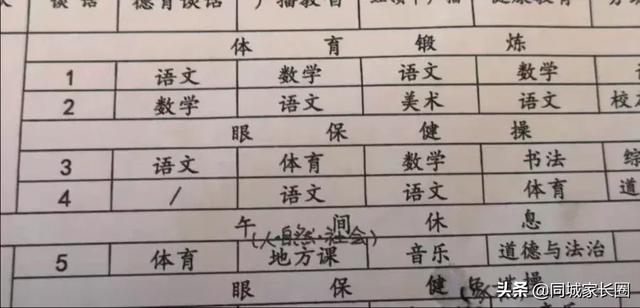 谈话 德育谈话 广播教育
体 育 锻 炼
1 语文 数学 语文 数学
2 数学 语文 美术 语文 校
眼 保 健 操
3 语文 体育 数学 书法 综
4 / 语文 语文 体育 道
午 间 休 息
(人·自然·社会)
5 体育 地方课 音乐 道德与法治
眼 保 健 操
头条 @同城家长圈